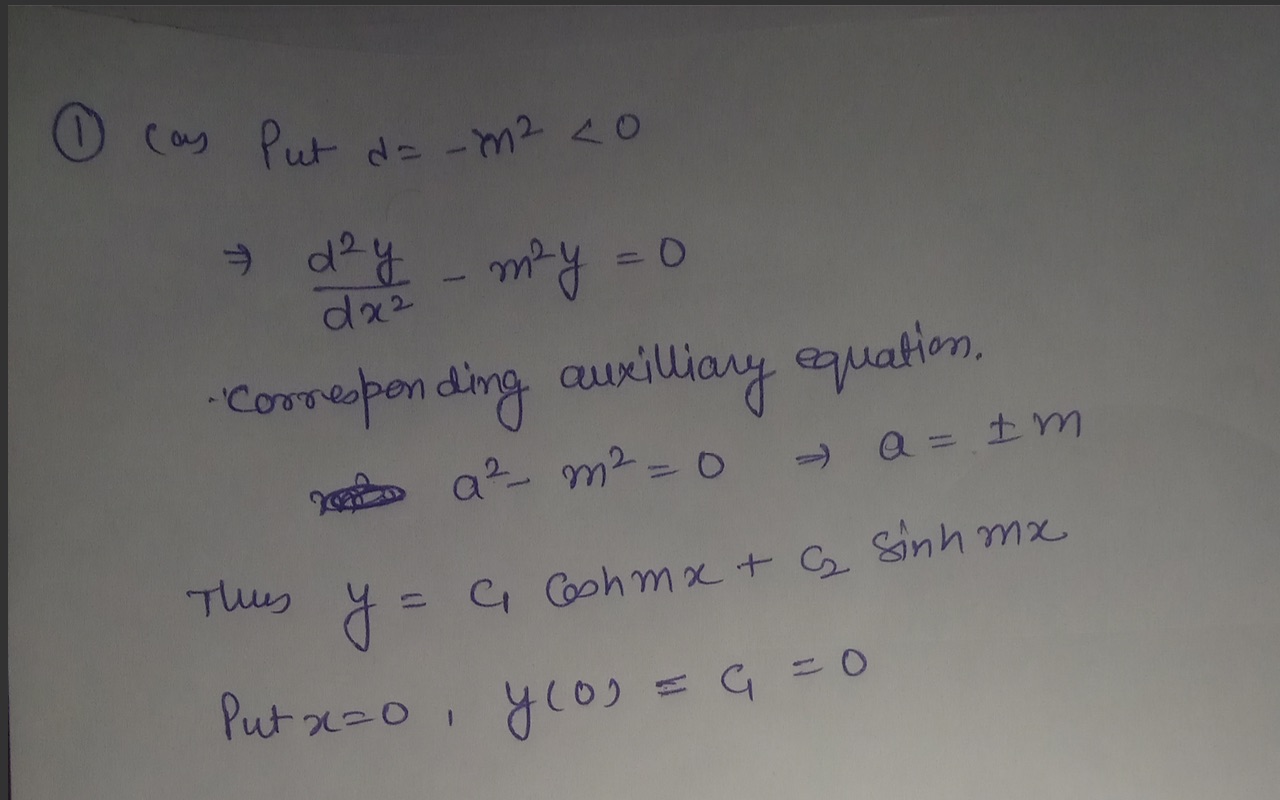 ① Cas Put d = -m² < 0
⇒ d²y/dx² - m²y = 0
Corresponding auxilliary equation.
a² - m² = 0 ⇒ a = ± m
Thus y = C₁ Coshmx + C₂ Sinhmx
Put x=0, y(0) = C₁ = 0